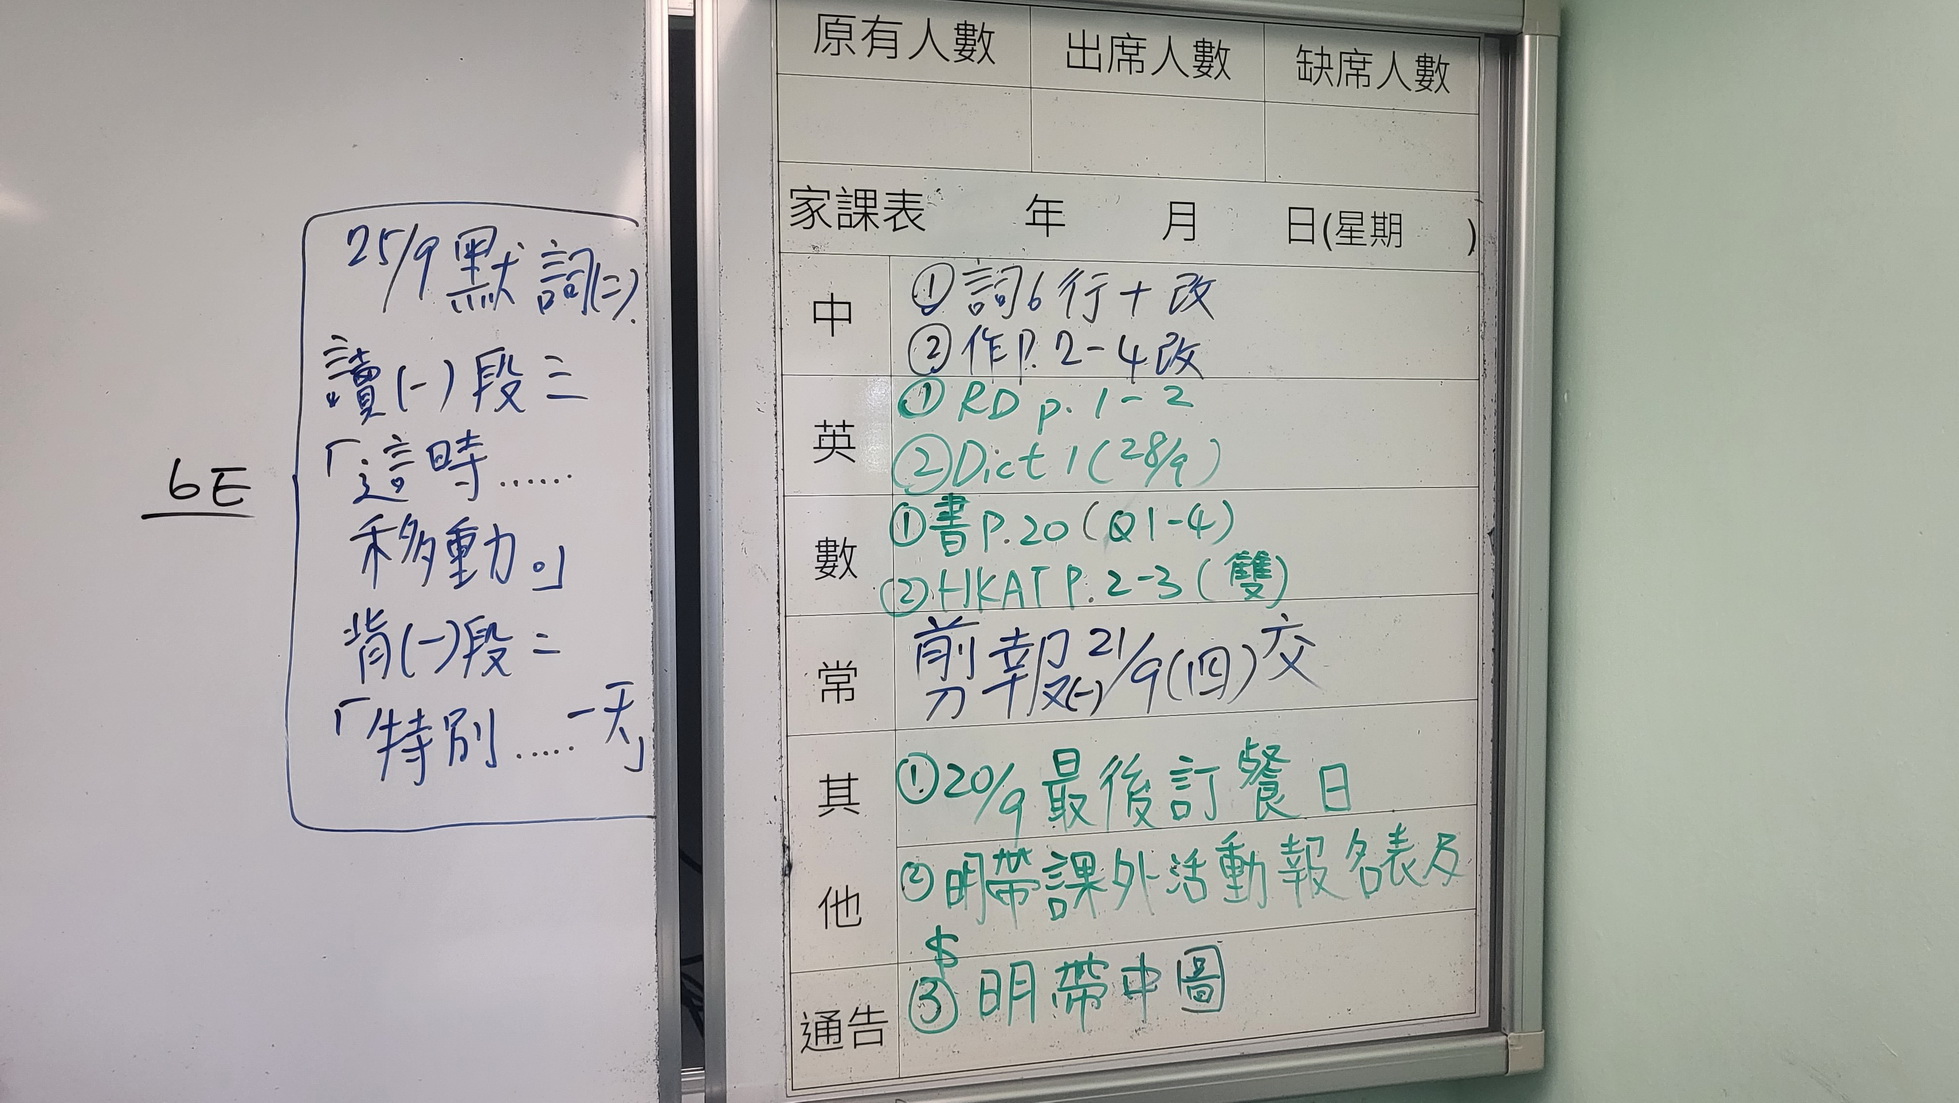 6E
25/9 默 詞(二)
讀(一)段三
「這時......
移動。」
背(一)段二
「特別......一天」
原有人數 出席人數 缺席人數
家課表 年 月 日(星期 )
中
①詞6行+改
②作P.2-4改
英
①RD p.1-2
②Dict 1(28/9)
數
①書P.20(Q1-4)
②HKAT P.2-3(雙)
常
剪報(一)21/9(四)交
其他
①20/9最後訂餐日
②明帶課外活動報名表及
$
③明帶中圖
通告